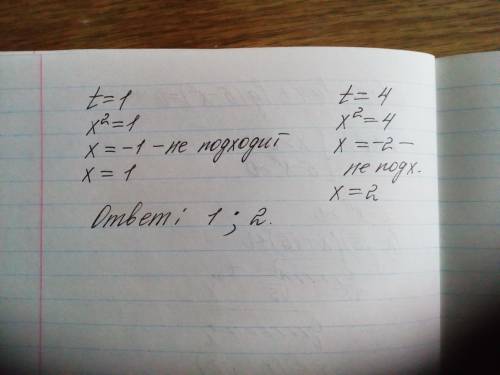 t=1
x²=1
x=-1 -не подходит
x=1
t=4
x²=4
x=-2-
не подх.
x=2
Ответ: 1; 2.